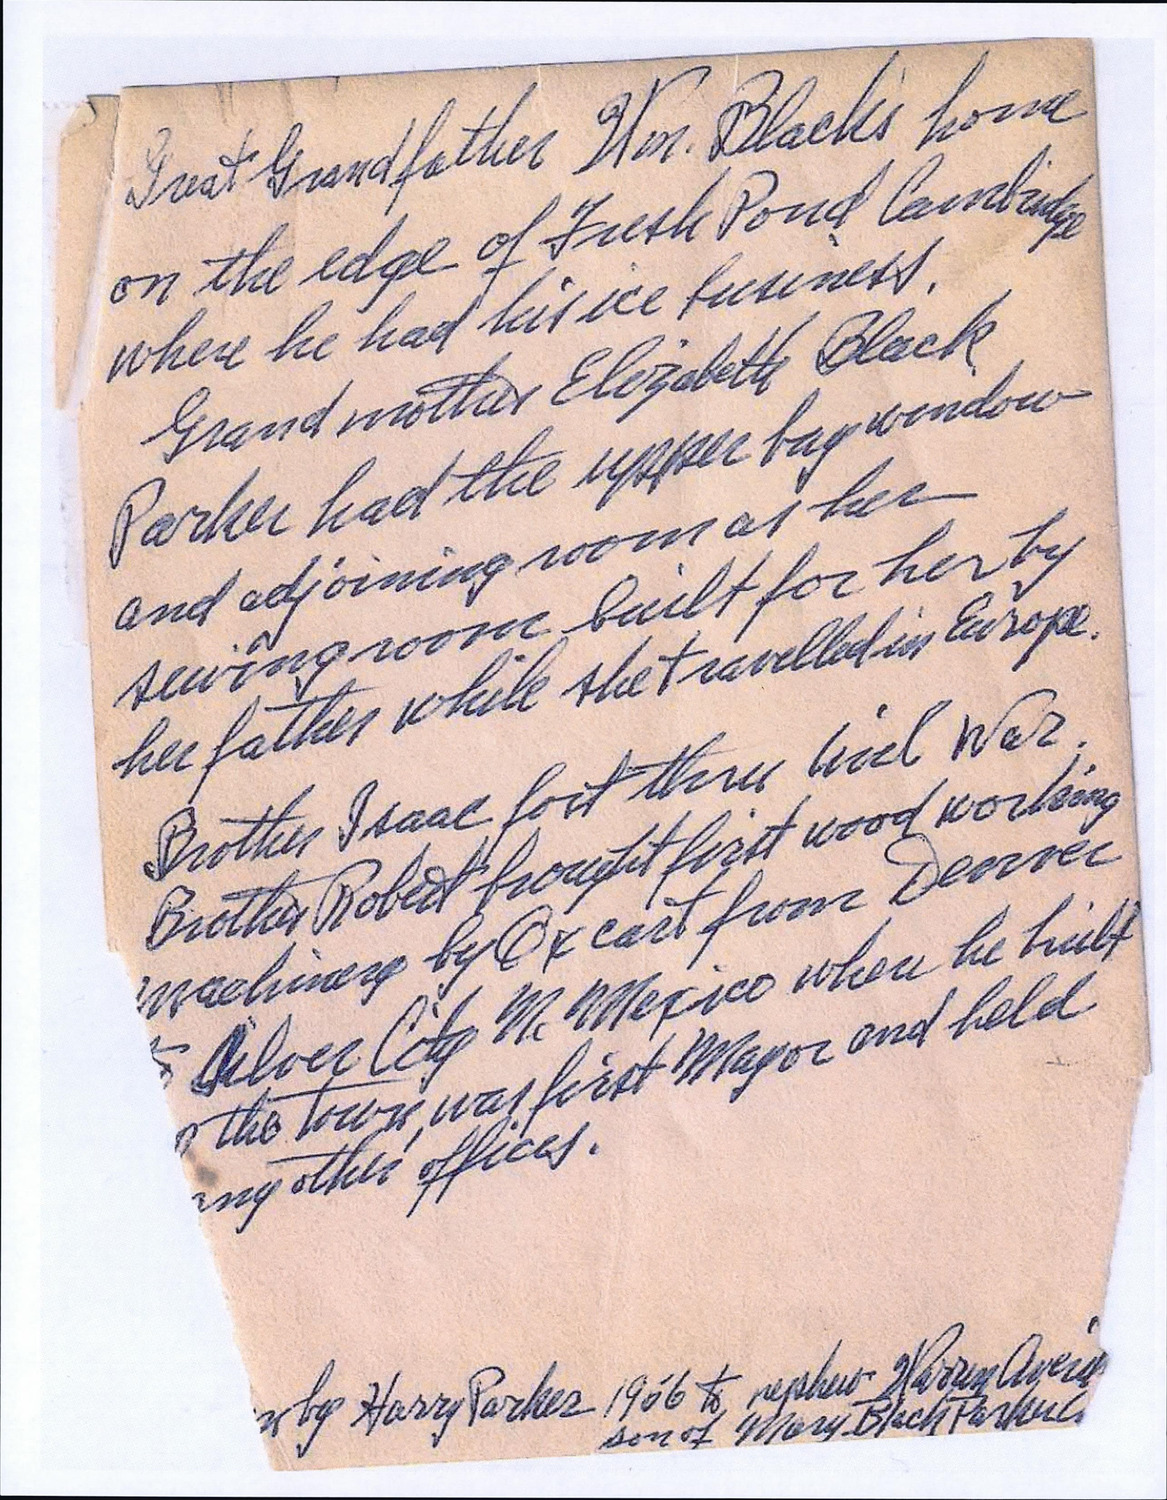 Great Grandfather Wm. Black's home
on the edge of Fresh Pond Cambridge
where he had his ice business.
Grandmother Elizabeth Black
Parker had the upper bay window
and adjoining room as her
sewing room built for her by
her father while she travelled in Europe.
Brother Isaac fort thru Civil War.
Brother Robert brought first wood working
machinery by Ox cart from Denver
to Silver City N. Mexico where he built
the town, was first Mayor and held
other offices.
by Harry Parker 1966 to nephew Warren
son of Mary Black Parker